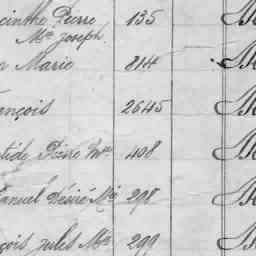 Pierre 135
Me Joseph
Marie 814
ançois 2645
Désiré Me 408
anuel Désiré Me 298
çois Jules Me 299